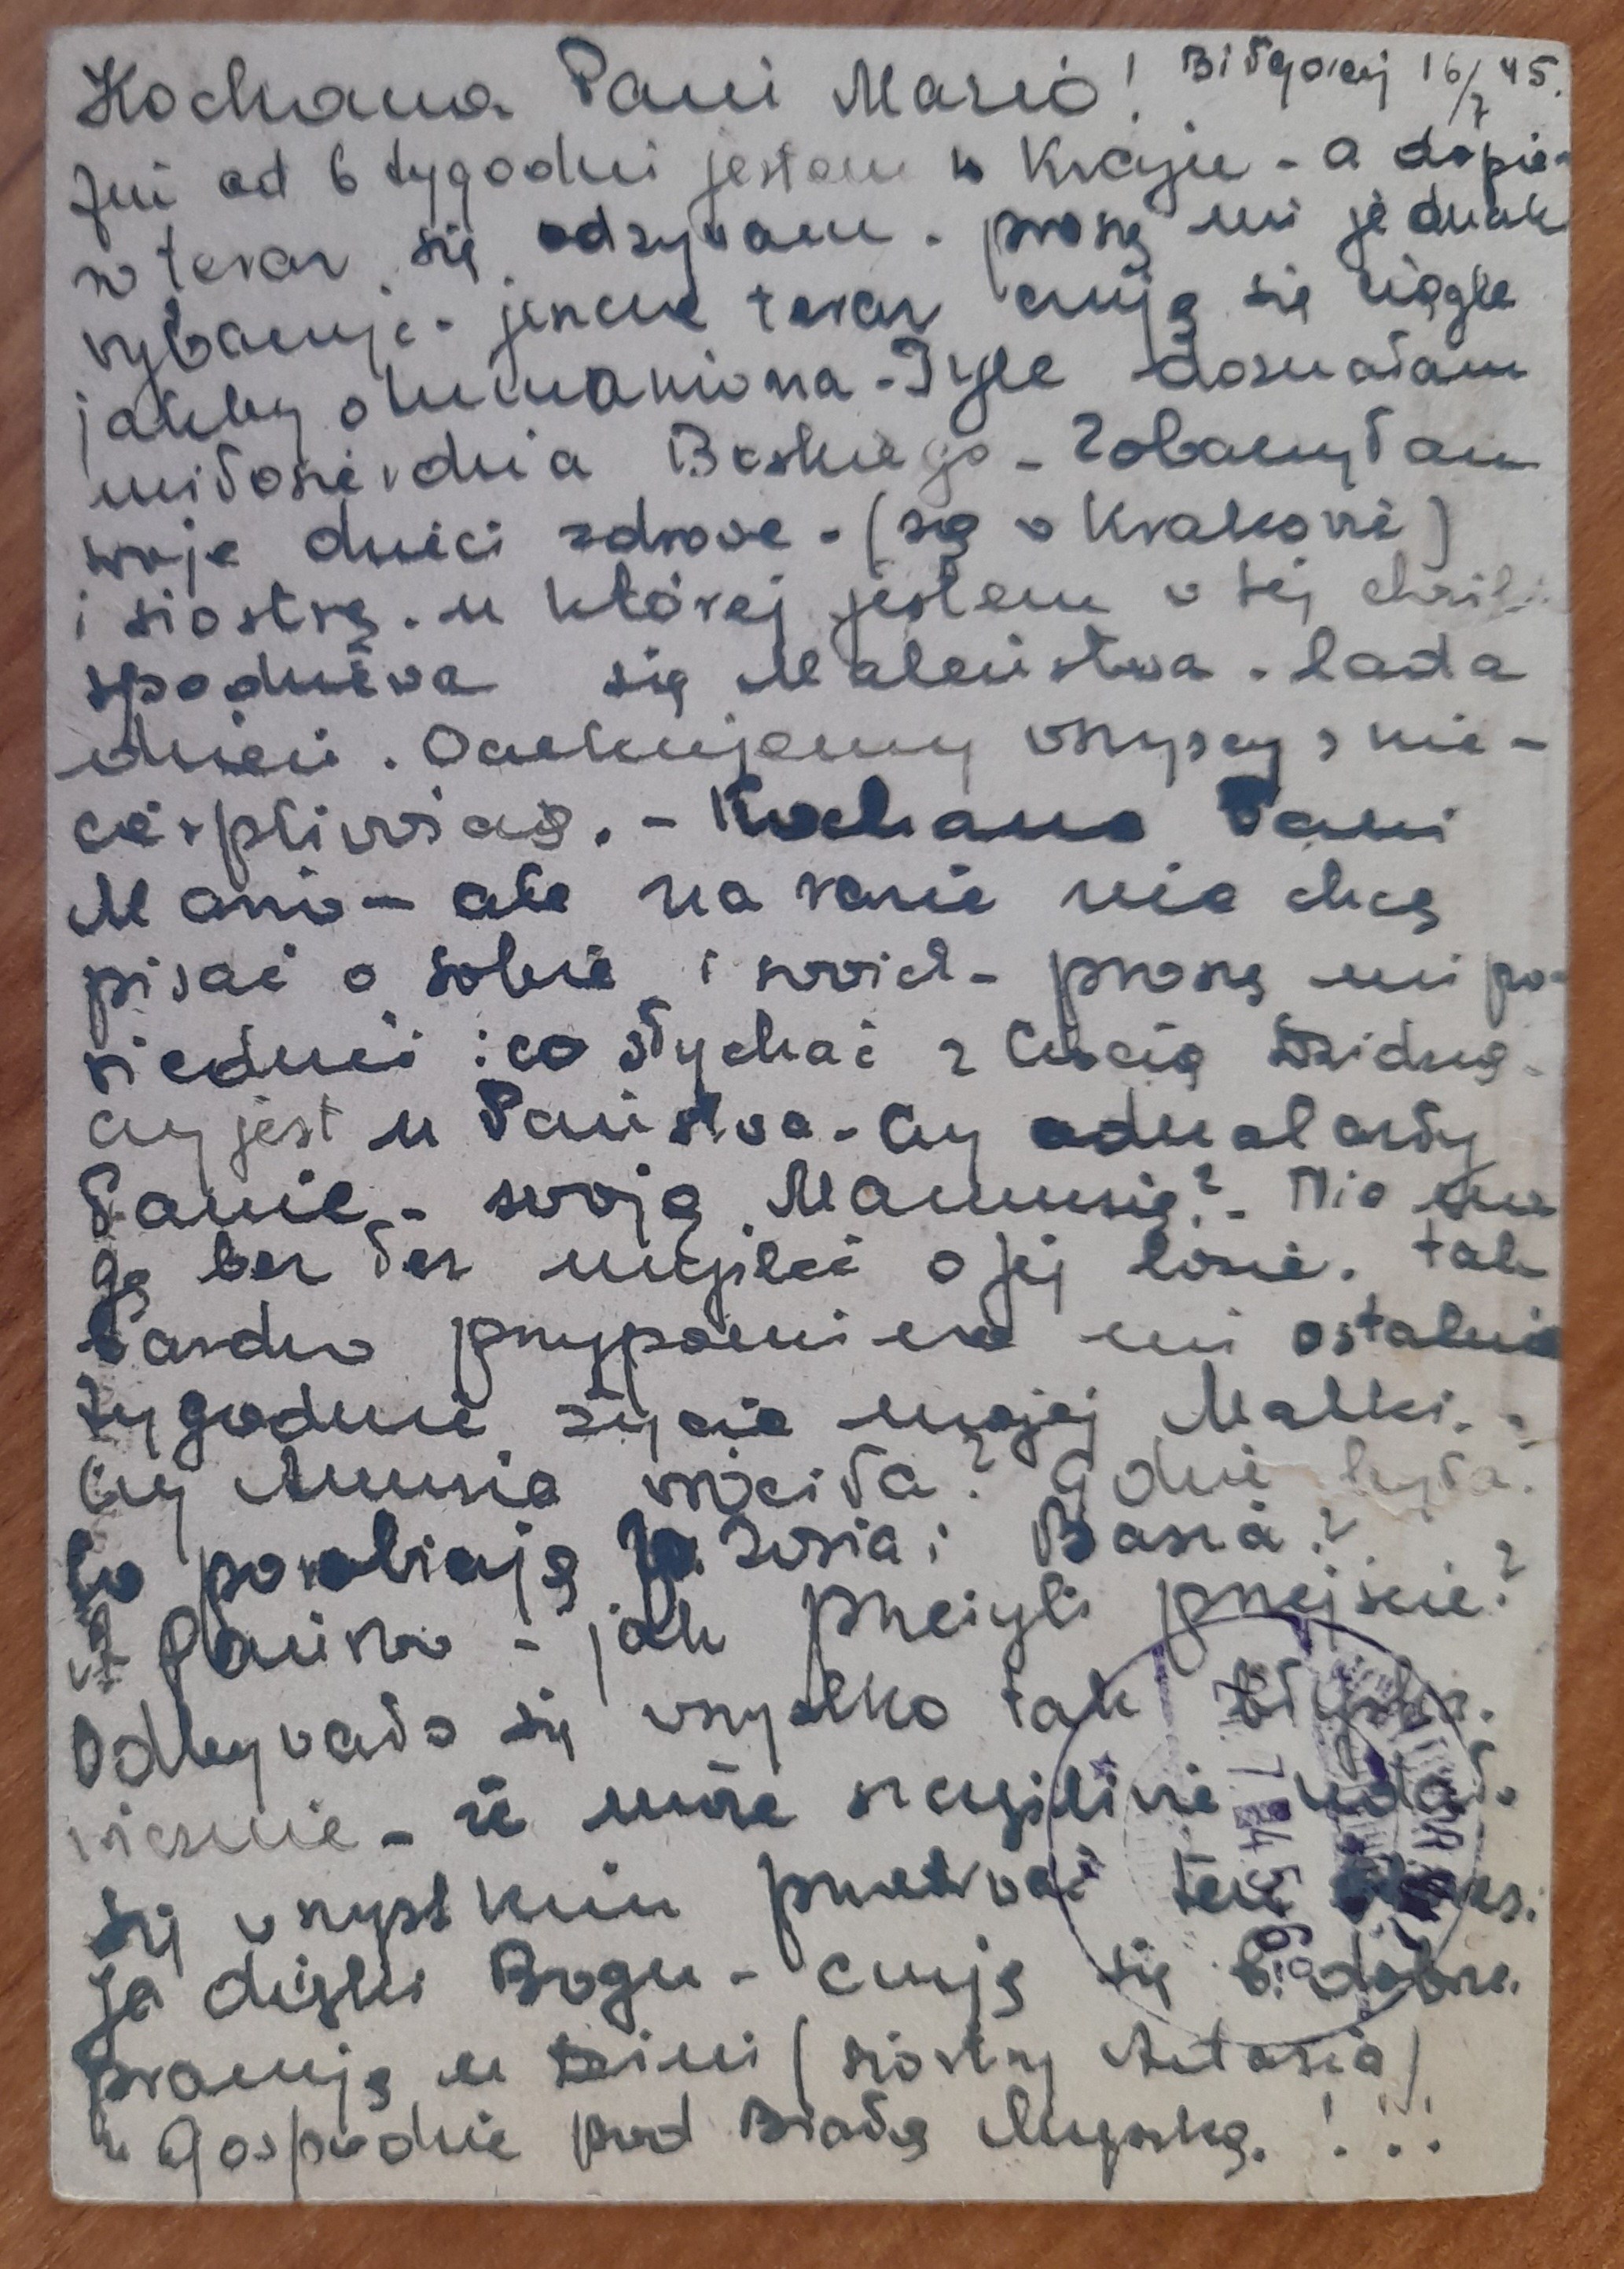 Kochana Pani Mario! Biłgoraj 16/7 45.
Już od 6 tygodni jestem w Kraju - a dopie-
ro teraz się odzywam. proszę mi jednak
wybaczyć - jeszcze teraz czuję się ciągle
jakby otumaniona - Tyle doznałam
miłosierdzia Boskiego - Zobaczyłam
swoje dzieci zdrowe - (są w Krakowie)
i siostrę. u której jestem w tej chwili
spodziewa się Maleństwa. lada
dzień. Oczekujemy wszyscy z nie-
cierpliwością. - Kochana Pani
Mario - ale na razie nie chcę
pisać o sobie i swoich - proszę mi po-
wiedzieć: co słychać z Ciocią
czy jest u Państwa - Czy odnalazły
Panie - swoją Mamusię? - Nie mo
gę bez łez myśleć o jej losie. tak
bardzo przypomina mi ostatnie
tygodnie życia mojej Matki. -
Czy Anusia wróciła? Gdzie była?
Co porabiają p. Zosia i Basia?
Państwo - jak przeżyli przejście?
Odbywało się wszystko tak błyska.
wicznie - że może szczęśliwie udało
się wszystkim przetrwać ten okres.
Ja dzięki Bogu - czuję się b. dobrze.
pracuję u Dzini (siostry Antosia)
w Gospodzie pod Białą Muszką.!!!
7 45